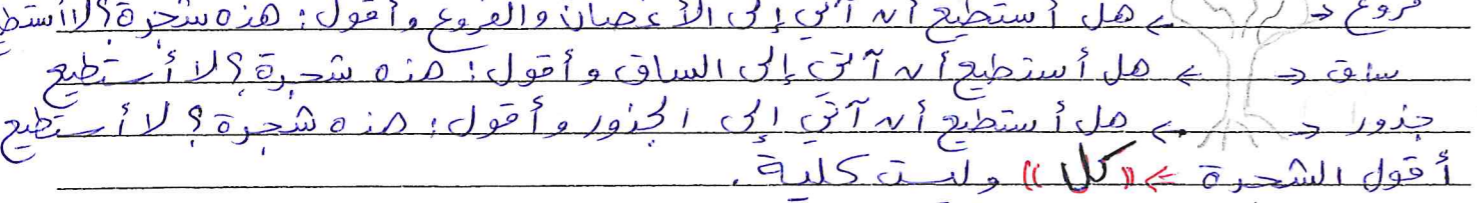 فروع ← ← هل أستطيع أن آتي إلى الأغصان والفروع وأقول: هذه شجرة؟ لا أستطيع
ساق ← ← هل أستطيع أن آتي إلى الساق وأقول: هذه شجرة؟ لا أستطيع
جذور ← ← هل أستطيع أن آتي إلى الجذور وأقول: هذه شجرة؟ لا أستطيع
أقول الشجرة ← «كل» وليست كلية.